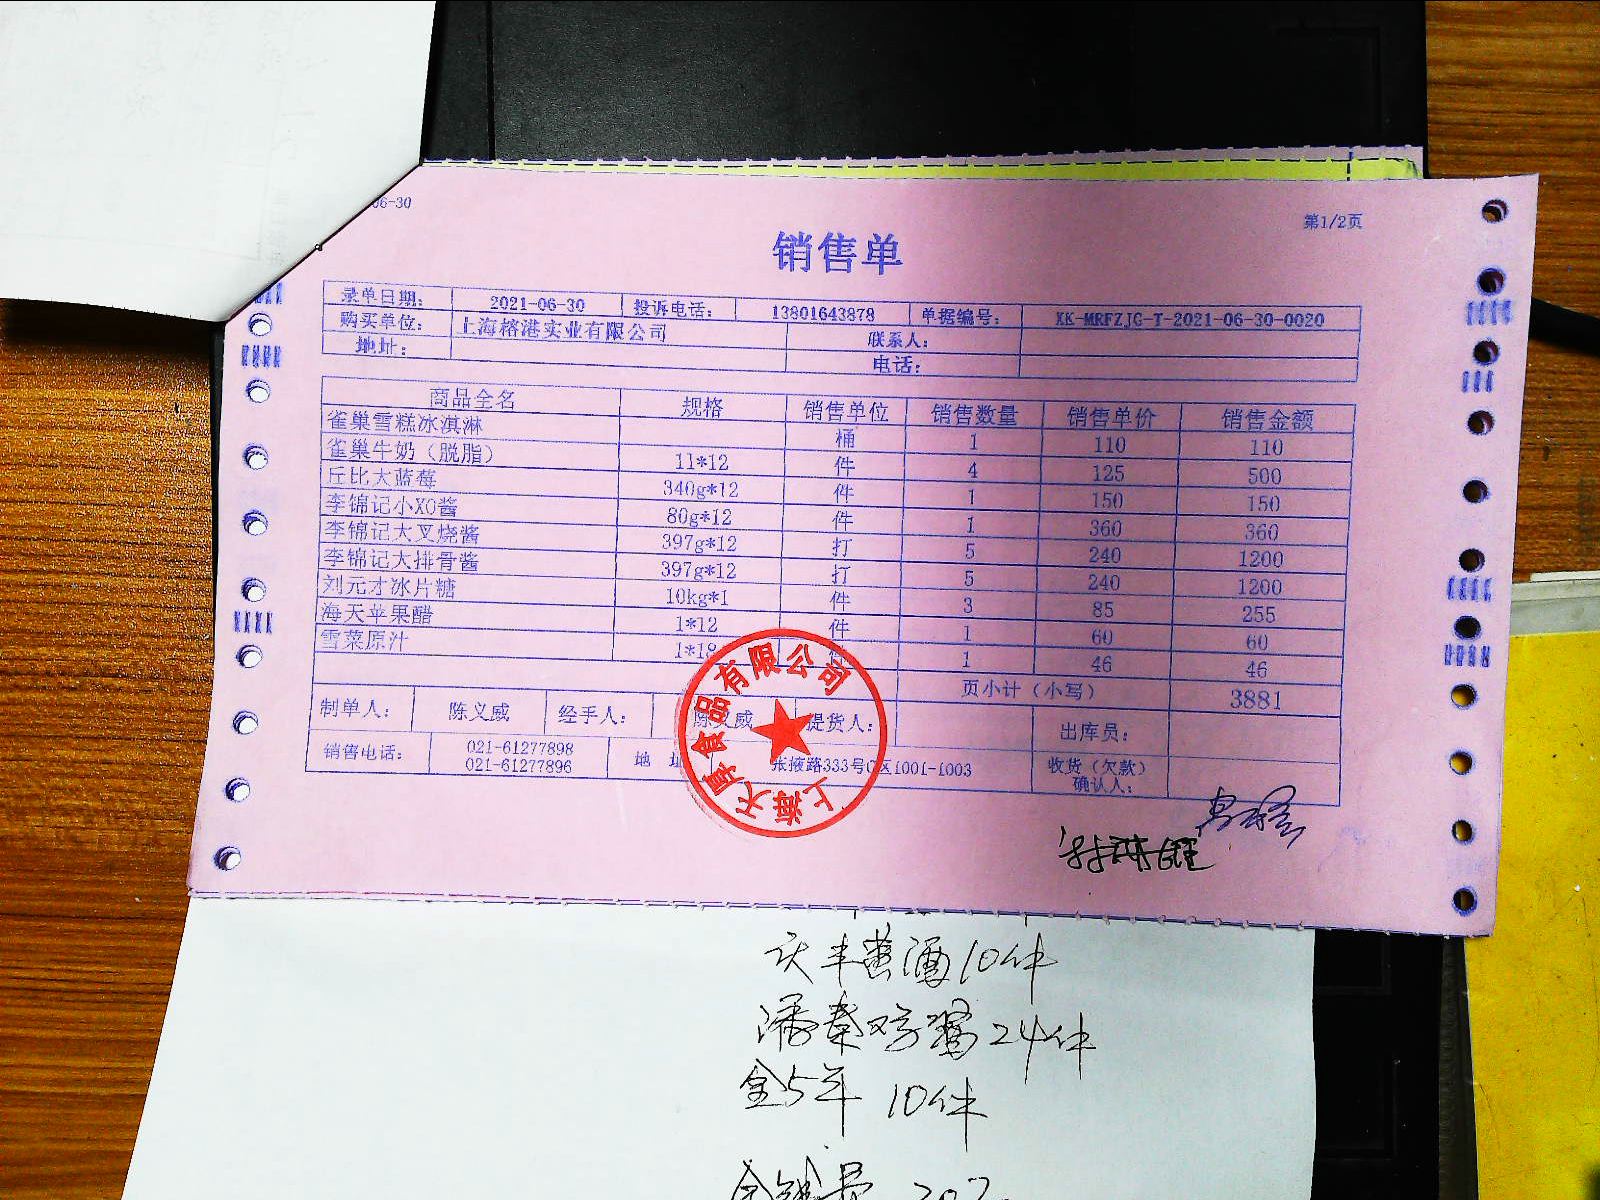 06-30
第1/2页
销售单
录单日期： 2021-06-30 投诉电话： 13801643878 单据编号： XK-MRFZJG-T-2021-06-30-0020
购买单位： 上海榕港实业有限公司 联系人：
地址： 电话：
商品全名 规格 销售单位 销售数量 销售单价 销售金额
雀巢雪糕冰淇淋 桶 1 110 110
雀巢牛奶（脱脂） 1l*12 件 4 125 500
丘比大蓝莓 340g*12 件 1 150 150
李锦记小XO酱 80g*12 件 1 360 360
李锦记大叉烧酱 397g*12 打 5 240 1200
李锦记大排骨酱 397g*12 打 5 240 1200
刘元才冰片糖 10kg*1 件 3 85 255
海天苹果醋 1*12 件 1 60 60
雪菜原汁 1*18 件 1 46 46
页小计（小写） 3881
制单人： 陈义威 经手人： 陈义威 提货人： 出库员：
销售电话： 021-61277898 021-61277896 地 址 张掖路333号C区1001-1003 收货（欠款）确认人：
上海天厚食品有限公司
庆丰黄酒10件
24件
金5年 10件